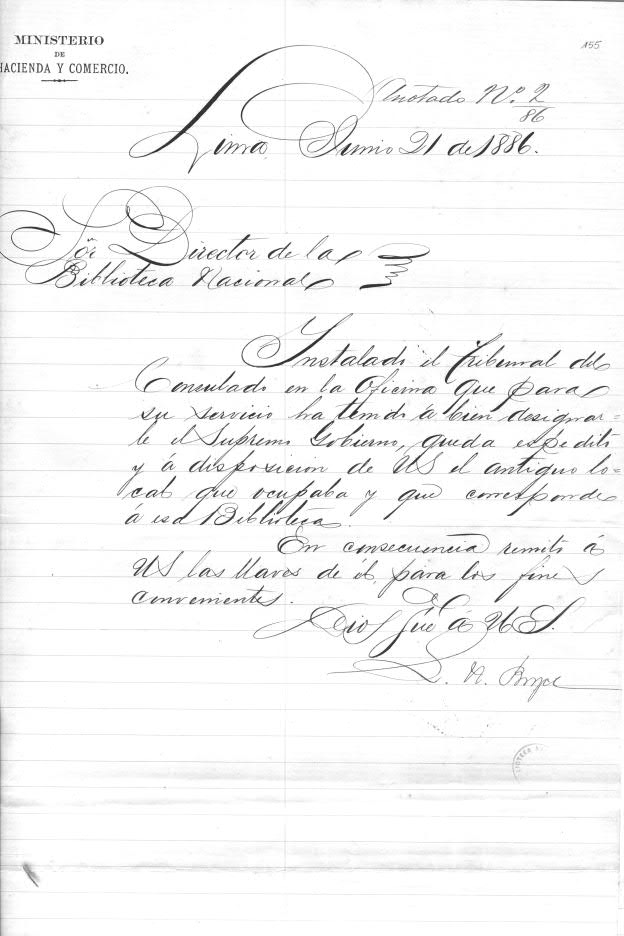 MINISTERIO
DE
HACIENDA Y COMERCIO.
155
Anotado Nº. 2
86
Lima Junio 21 de 1886.
Sor Director de la
Biblioteca Nacional
Instalado el Tribunal del
Consulado en la Oficina que para
su servicio ha tenido á bien designar=
le el Supremo Gobierno, queda espedito
y á disposicion de US el antiguo lo=
cal que ocupaba y que corresponde
á esa Biblioteca.
En consecuencia remito á
US las llaves de él, para los fines
convenientes.
Dios gue á US.